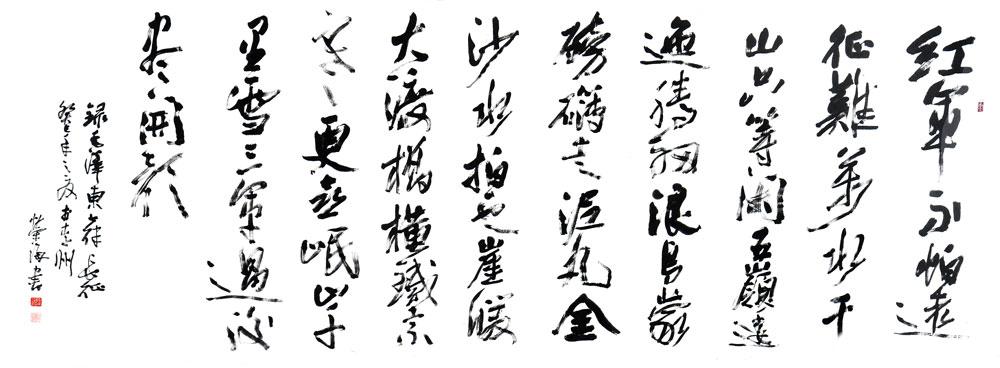 紅軍不怕遠
征難萬水千
山只等閑五嶺逶
迤騰細浪烏蒙
磅礴走泥丸金
沙水拍云崖暖
大渡橋橫鐵索
寒更喜岷山千
里雪三軍過後
盡開顏
錄毛澤東七律長征
癸巳年之夏 州
榮海書